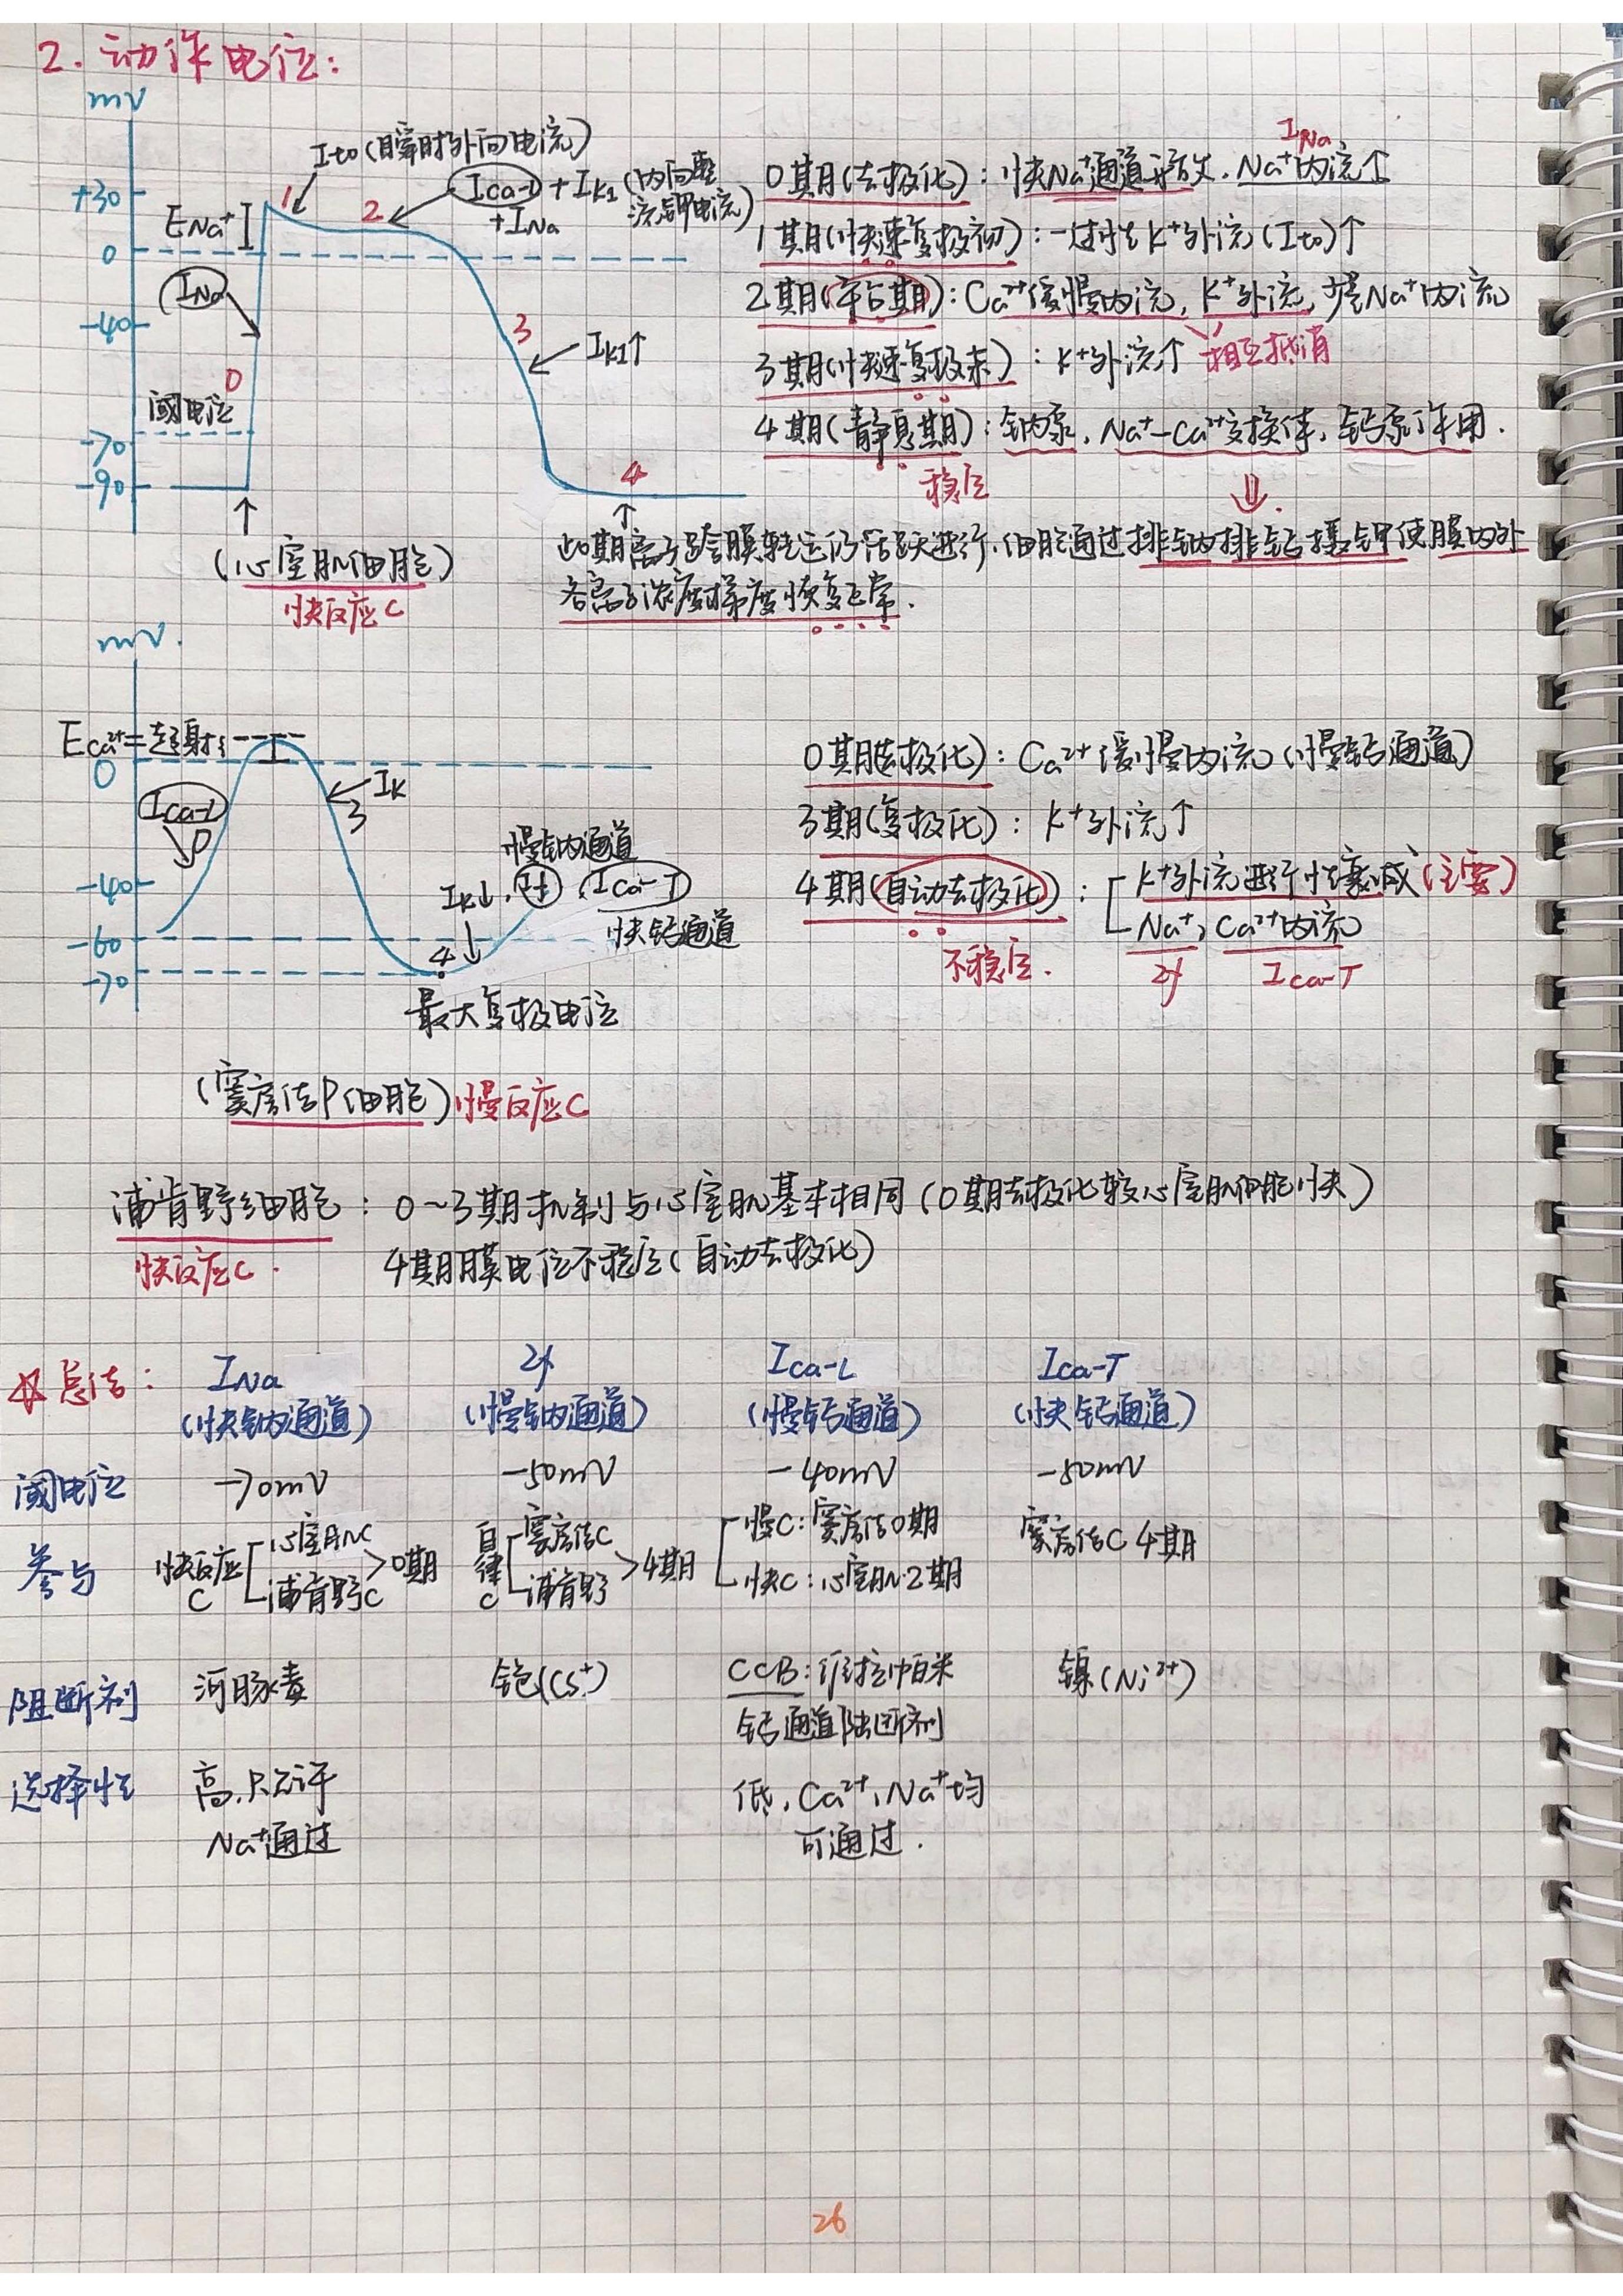 2. 动作电位:
mV
+30
0
-40
-70
-90
ENa⁺
INa
阈电位
0
1
2
3
4
Ito(瞬时外向电流)
ICa-L + IK1 (内向整流钾电流)
+INa
IK1↑
(心室肌细胞)
快反应C
INa
0期(去极化): 快Na⁺通道开放, Na⁺内流↑
1期(快速复极初): 一过性K⁺外流(Ito)↑
2期(平台期): Ca²⁺缓慢内流, K⁺外流, 少量Na⁺内流
相互抵消
3期(快速复极末): K⁺外流↑
4期(静息期): 钠泵, Na⁺-Ca²⁺交换体, 钙泵作用.
稳定
此期离子跨膜转运仍活跃进行, 细胞通过排钠排钙摄钾使膜内外
各离子浓度梯度恢复正常.
mV.
ECa²⁺=超射
0
-40
-60
-70
ICa-L
0
IK
3
慢钠通道
IK↓, If, ICa-T
快钙通道
4
最大复极电位
(窦房结P细胞)慢反应C
0期(去极化): Ca²⁺缓慢内流 (慢钙通道)
3期(复极化): K⁺外流↑
4期(自动去极化): K⁺外流进行性衰减(主要)
Na⁺, Ca²⁺内流
不稳定.
If ICa-T
浦肯野细胞: 0~3期机制与心室肌基本相同(0期去极化较心室肌细胞快)
快反应C. 4期膜电位不稳定(自动去极化)
☆总结: INa If ICa-L ICa-T
(快钠通道) (慢钠通道) (慢钙通道) (快钙通道)
阈电位 -70mV -50mV -40mV -50mV
参与 快反应C 心室肌C 浦肯野C >0期 自律C 窦房结C 浦肯野 >4期 慢C: 窦房结0期 快C: 心室肌2期 窦房结C 4期
阻断剂 河豚毒 铯(Cs⁺) CCB: 维拉帕米 镍(Ni²⁺)
钙通道阻断剂
选择性 高, 只允许 低, Ca²⁺、Na⁺均
Na⁺通过 可通过.
26